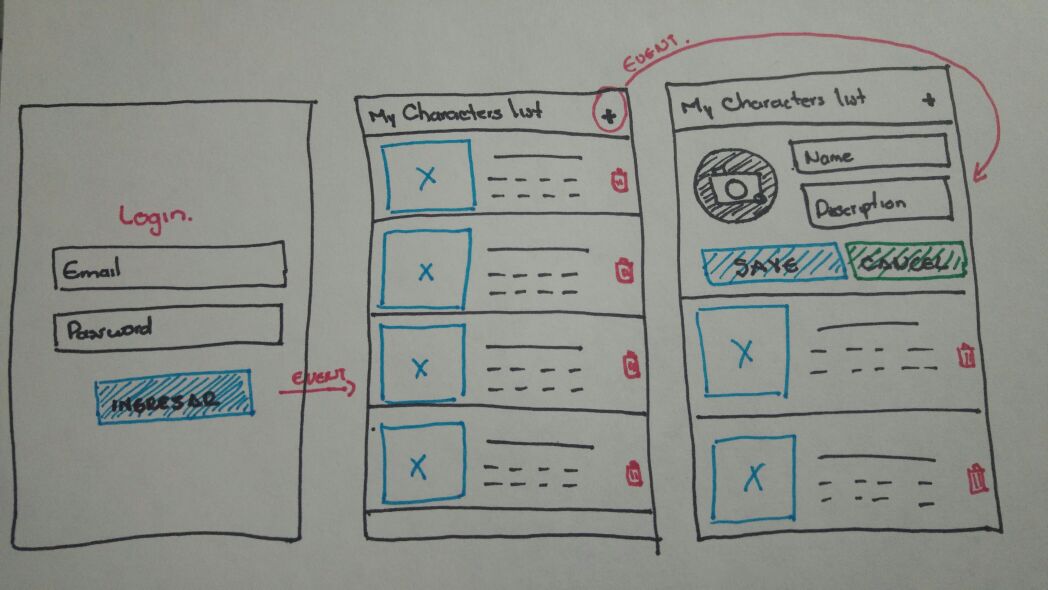 Login.
Email
Password
INGRESAR
EVENT
My Characters list +
EVENT.
My Characters list +
Name
Description
SAVE
CANCEL